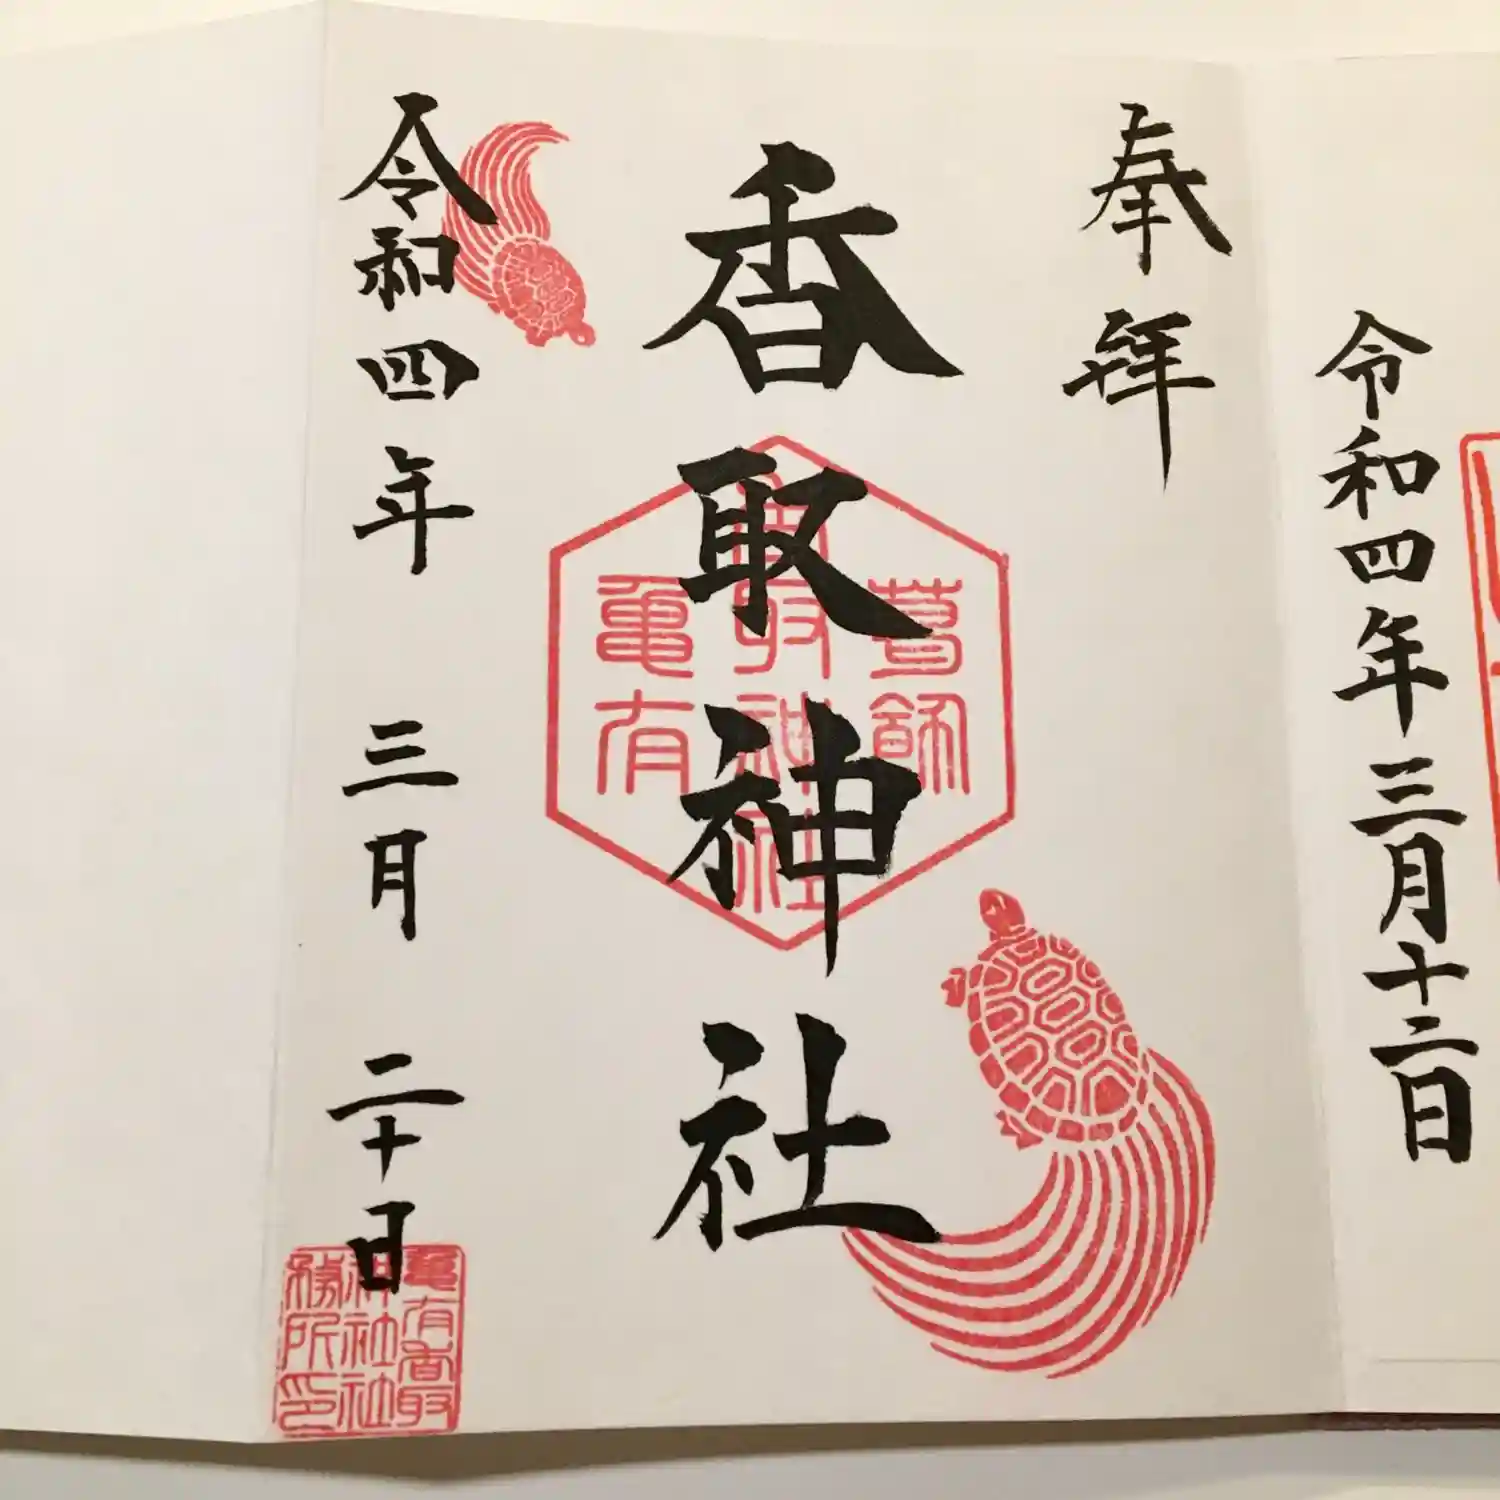 令和四年三月十二日
奉拝
香取神社
令和四年 三月 二十日
葛飾
香取神社
亀有
亀有香取
神社社
務所印